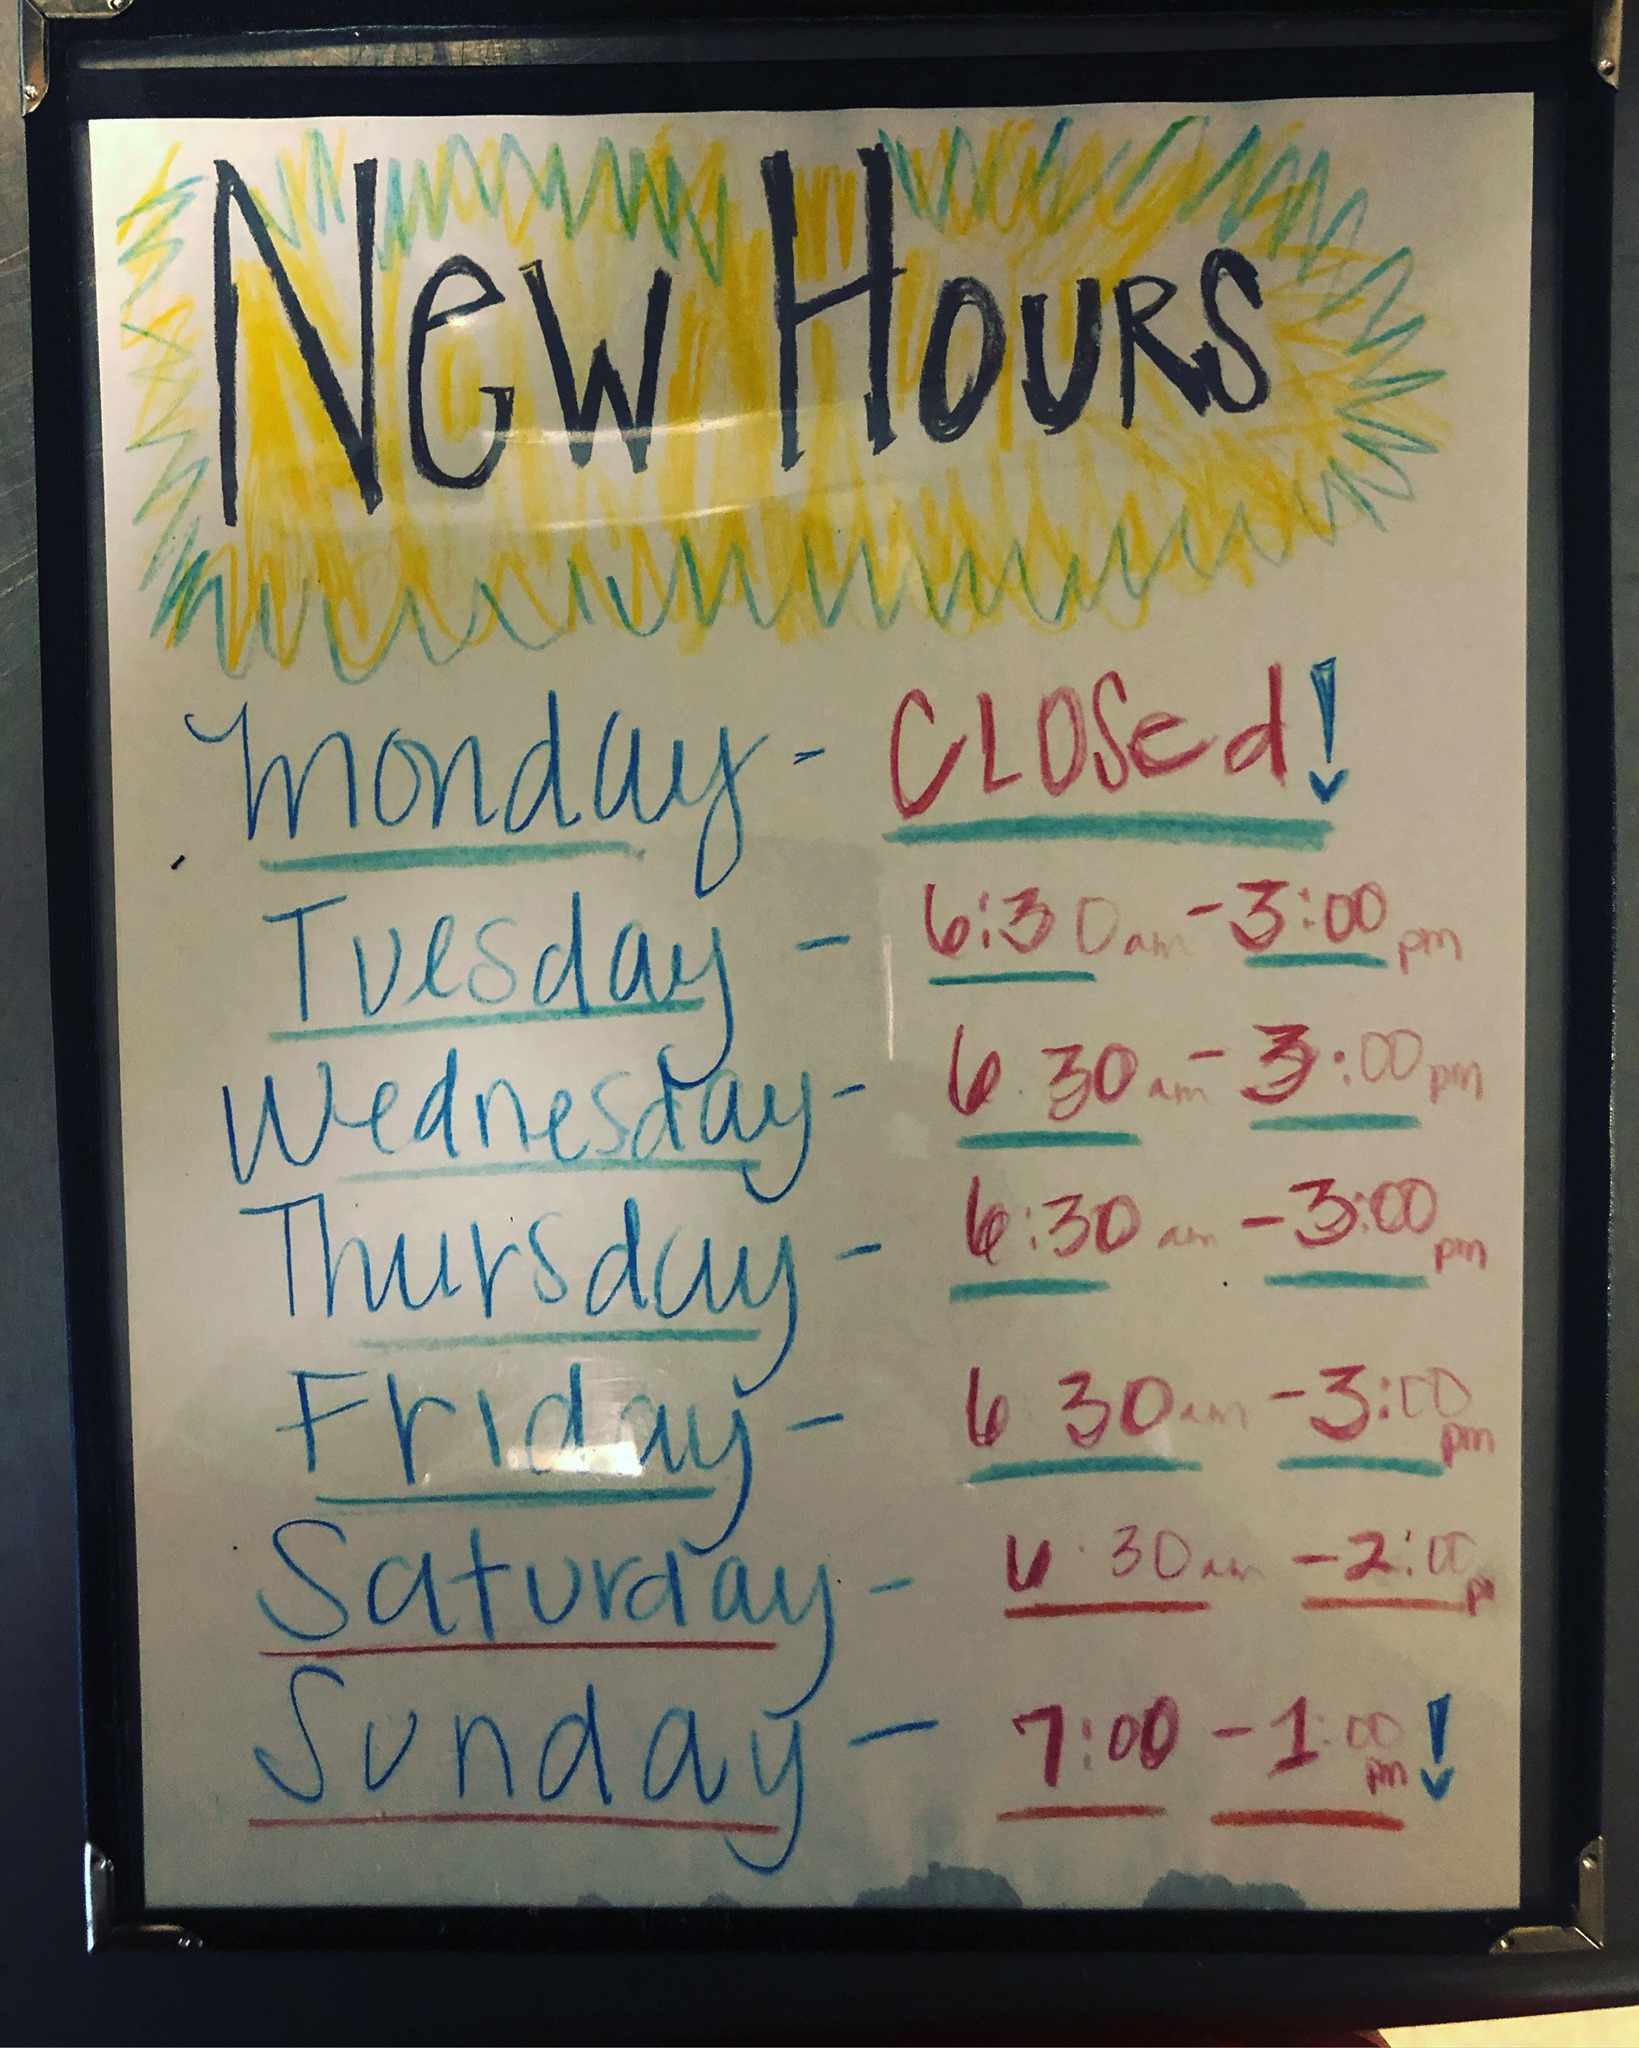 New Hours
Monday - CLOSed!
Tuesday - 6:30am - 3:00pm
Wednesday - 6:30am - 3:00pm
Thursday - 6:30am - 3:00pm
Friday - 6:30am - 3:00pm
Saturday - 6:30am - 2:00pm
Sunday - 7:00 - 1:00pm!